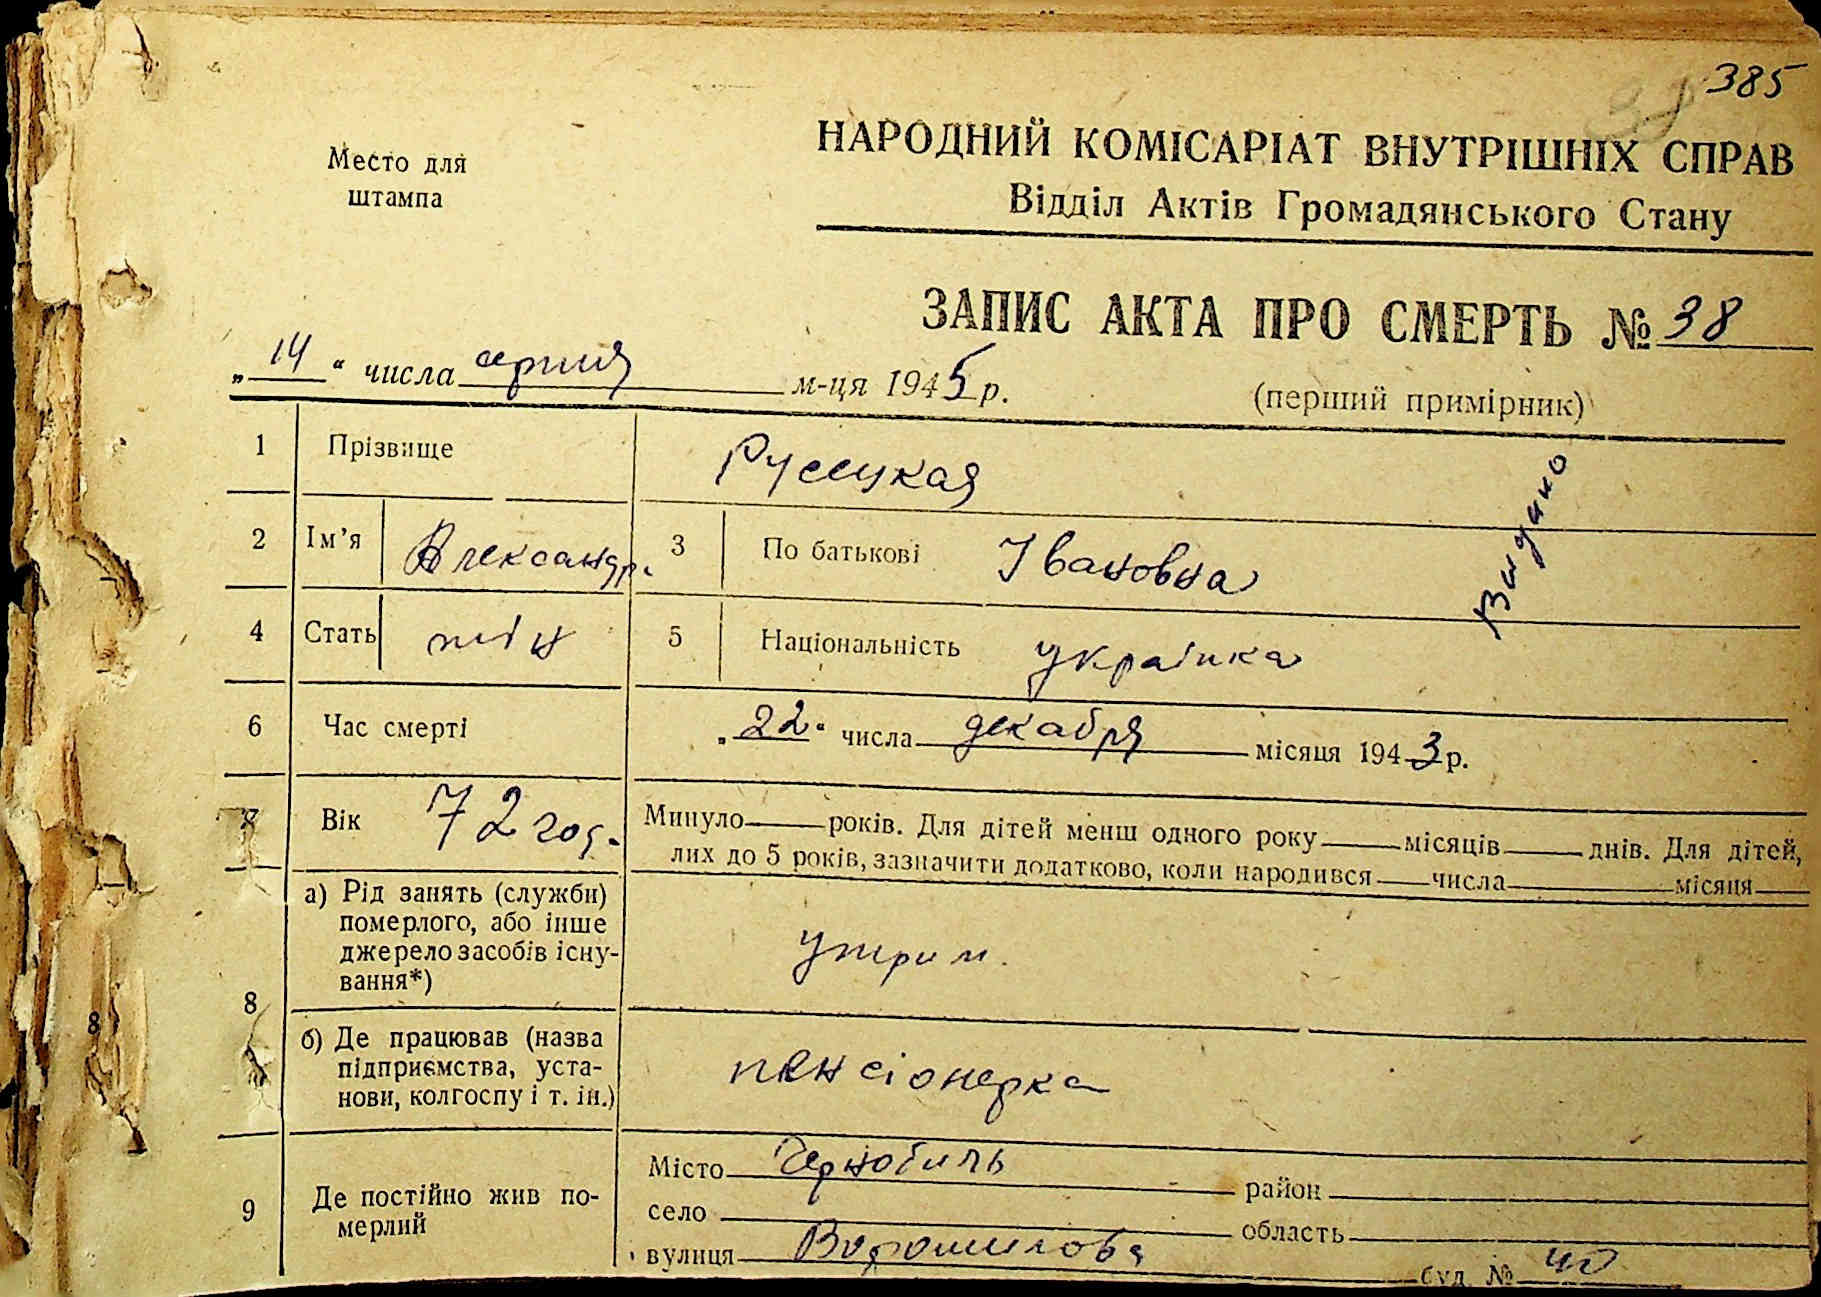 385
Место для
штампа
НАРОДНИЙ КОМІСАРІАТ ВНУТРІШНІХ СПРАВ
Відділ Актів Громадянського Стану
ЗАПИС АКТА ПРО СМЕРТЬ № 38
„14“ числа серпня м-ця 1945 р.
(перший примірник)
1 Прізвище Русецкая
Видано
2 Ім’я Александр. 3 По батькові Івановна
4 Стать жін 5 Національність українка
6 Час смерті „22“ числа декабря місяця 1943 р.
7 Вік 72 год. Минуло років. Для дітей менш одного року місяців днів. Для дітей,
лих до 5 років, зазначити додатково, коли народився числа місяця
8 а) Рід занять (служби)
померлого, або інше
джерело засобів існу-
вання*)
утрим.
б) Де працював (назва
підприємства, уста-
нови, колгоспу і т. ін.)
пенсіонерка
9 Де постійно жив по-
мерлий
Місто Чернобиль район
село область
вулиця Ворошилова буд. № 40
8